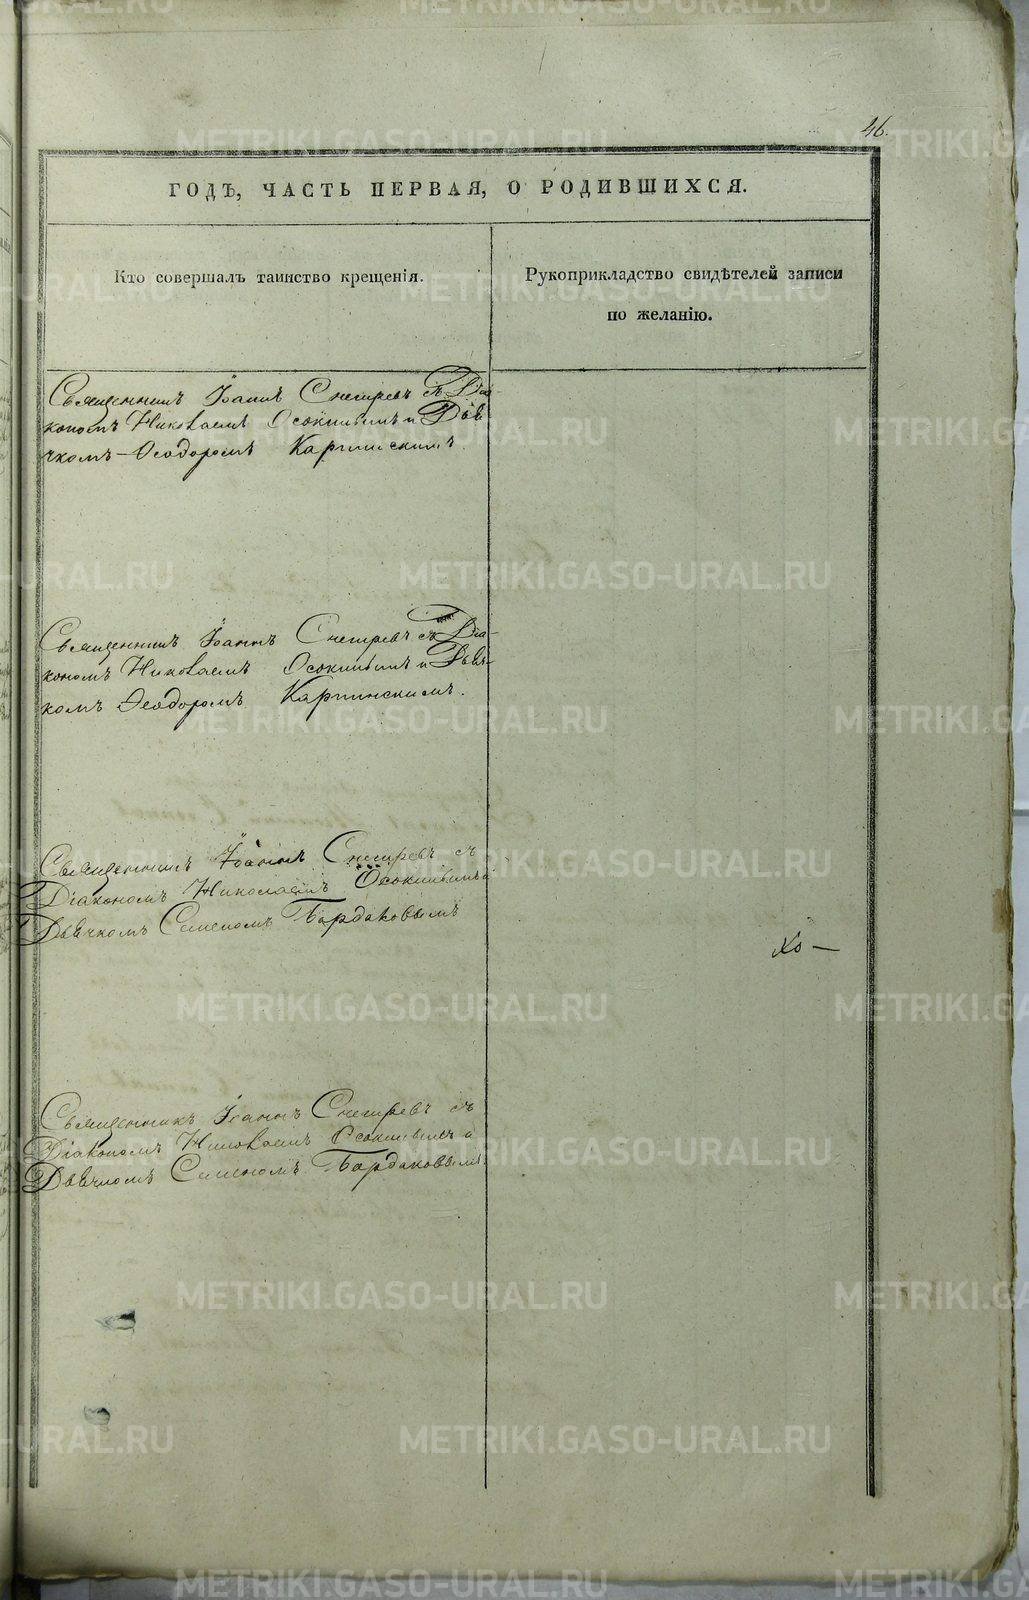 46.
ГОДЪ, ЧАСТЬ ПЕРВАЯ, О РОДИВШИХСЯ.
Кто совершалъ таинство крещенія.
Рукоприкладство свидѣтелей записи
по желанію.
Священникъ Іоаннъ Снегиревъ съ Діа
кономъ Николаемъ Осокинымъ и Дья
чкомъ Ѳеодоромъ Каргинскимъ
Священникъ Іоаннъ Снегиревъ съ Діа-
кономъ Николаемъ Осокинымъ и Дьяч-
комъ Ѳеодоромъ Каргинскимъ.
Священникъ Іоаннъ Снегиревъ съ
Діакономъ Николаемъ Осокинымъ и
Дьячкомъ Семеномъ Бардаковымъ
Хо —
Священникъ Іоаннъ Снегиревъ съ
Діакономъ Николаемъ Осокинымъ и
Дьячкомъ Семеномъ Бардаковымъ.
METRIKI.GASO-URAL.RU